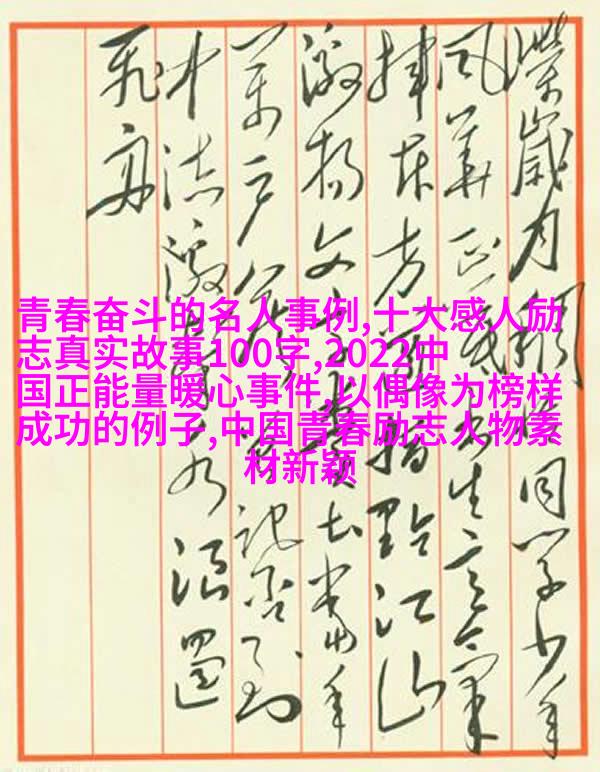 青春奋斗的名人事例,十大感人励
志真实故事100字,2022中
国正能量暖心事件,以偶像为榜样
成功的例子,中国青春励志人物素
材新颖
歲月稠恰同学少年
风華正茂书生意氣
挥斥方遒指點江山
激扬文字粪土当年
万户侯曾记否到
中流水浪遏
飞舟